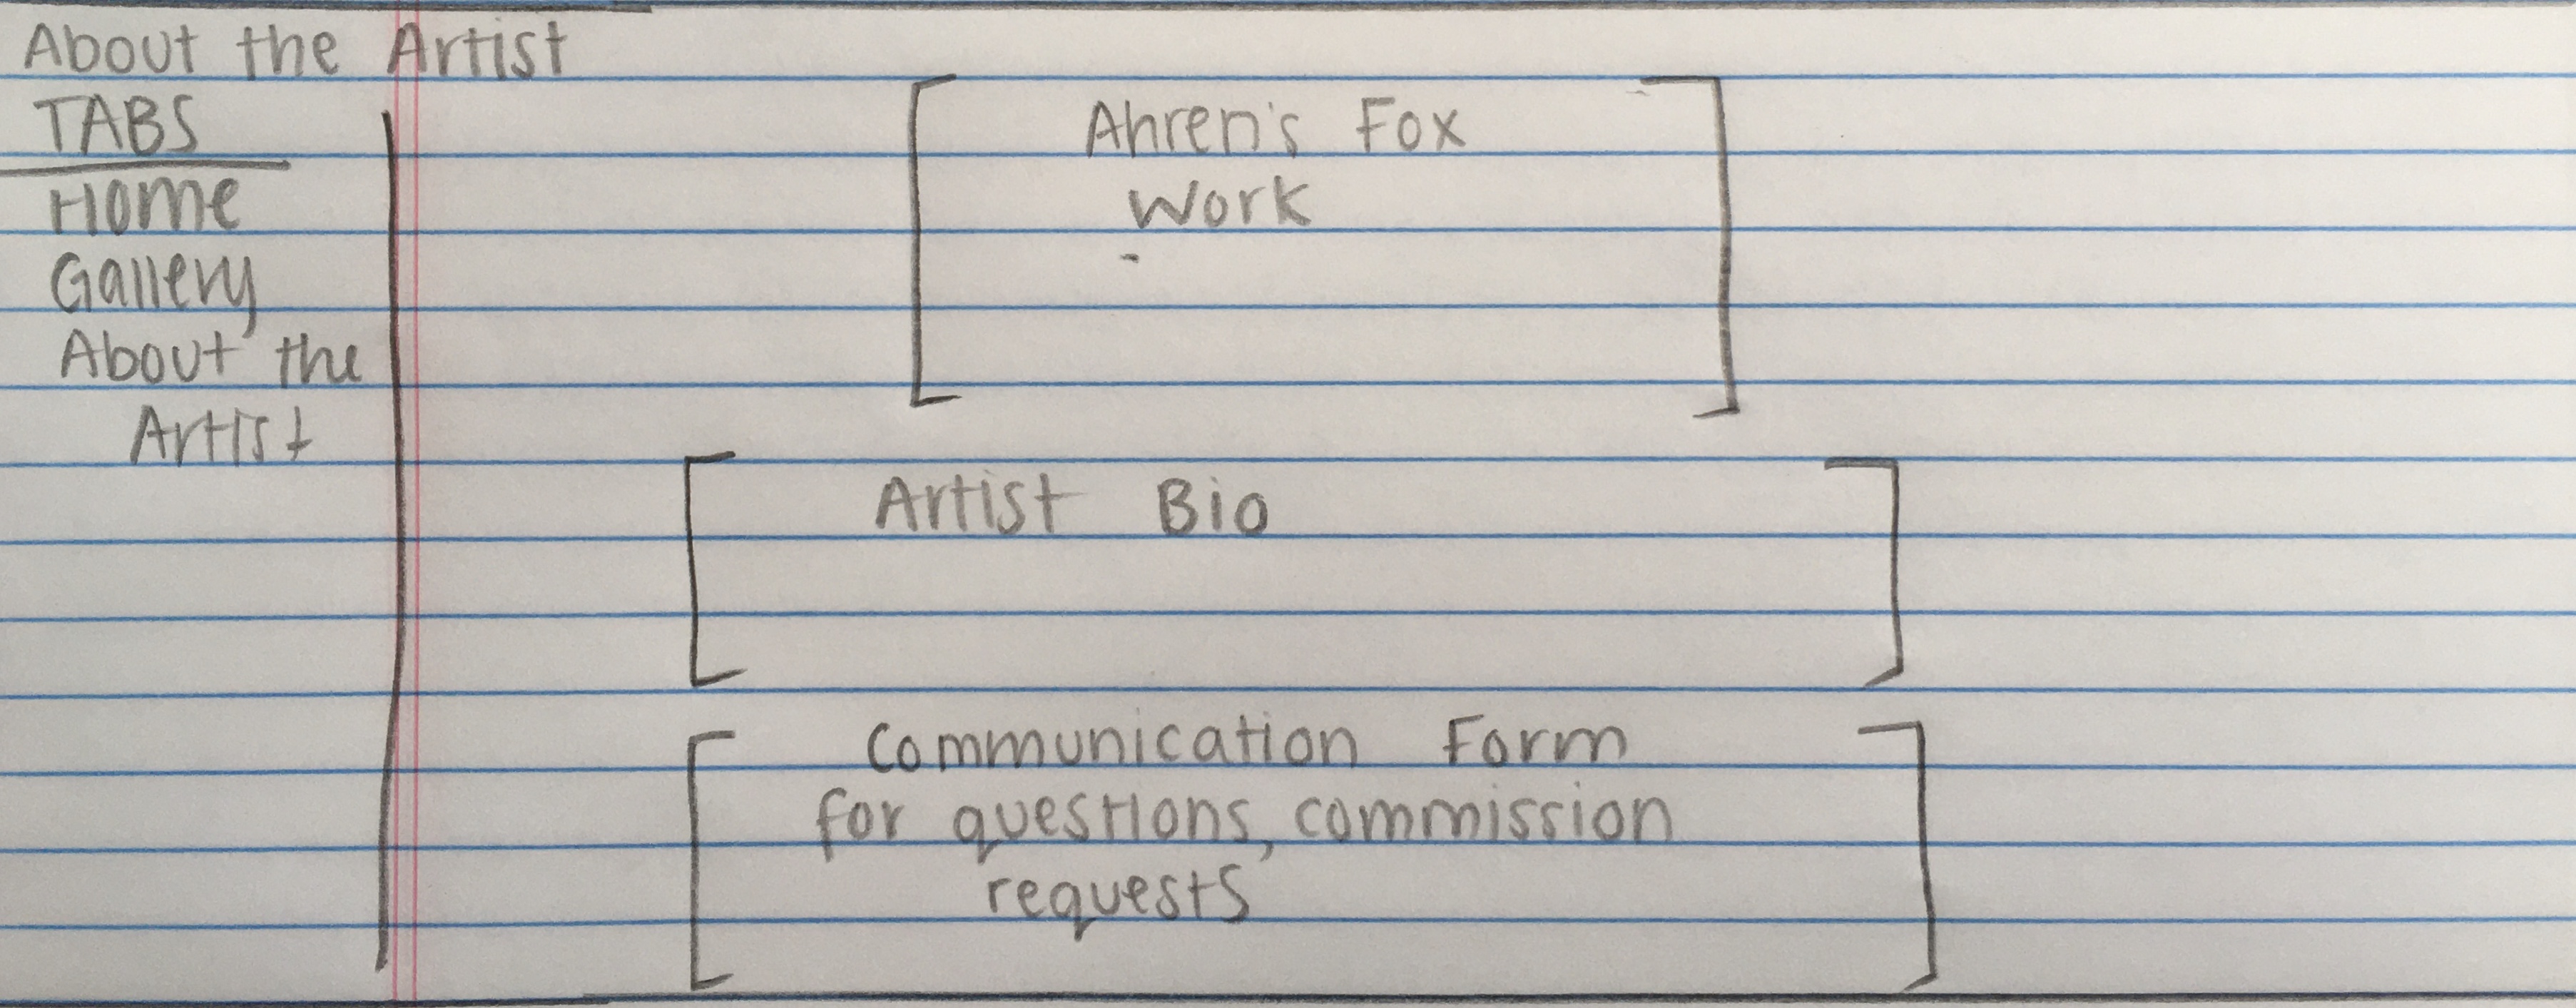 About the Artist
TABS
Home
Gallery
About the
Artist
Ahren's Fox
Work
Artist Bio
Communication Form
for questions, commission
requests